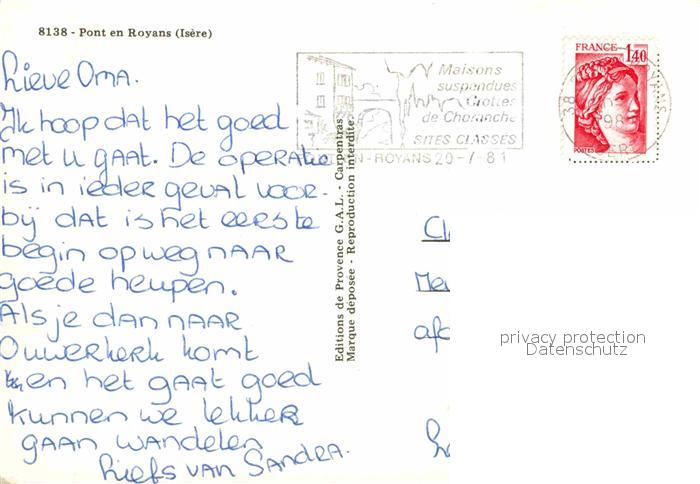 8138 - Pont en Royans (Isère)
Lieve Oma.
Ik hoop dat het goed
met u gaat. De operatie
is in ieder geval voor-
bij dat is het eerste
begin op weg naar
goede heupen.
Als je dan naar
Ouwerkerk komt
en het gaat goed
kunnen we lekker
gaan wandelen
Liefs van Sandra.
Editions de Provence G.A.L. - Carpentras
Marque déposée - Reproduction interdite.
Maisons
suspendues
Grottes
de Choranche
SITES CLASSÉS
EN-ROYANS 20-7-81
FRANCE 1,40
POSTES
38
Cl
Me
afd
privacy protection
Datenschutz